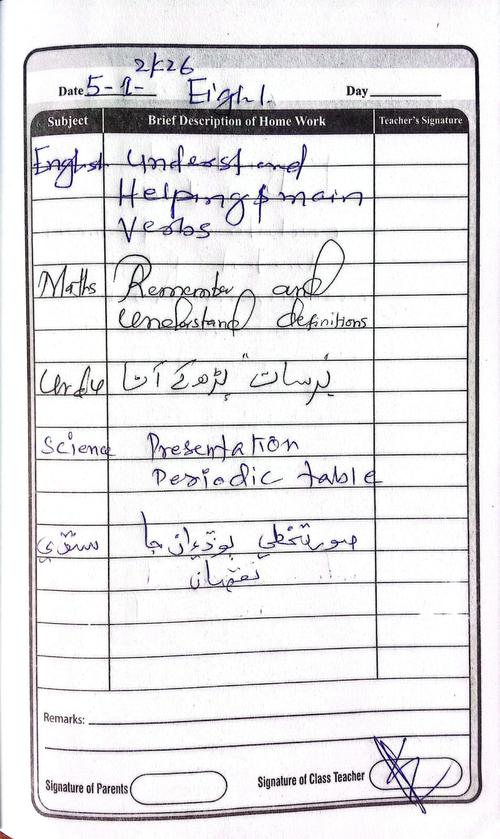 2k26
Date 5-1- Eight Day
Subject Brief Description of Home Work Teacher's Signature
English Understand
Helping & main
Verbs
Maths Remember and
Understand definitions
Urdu "برسات" پڑھ کے آنا
Science Presentation
Periodic table
سنڌي صورتخطي ٻوڏن جا
نقصان
Remarks:
Signature of Parents Signature of Class Teacher